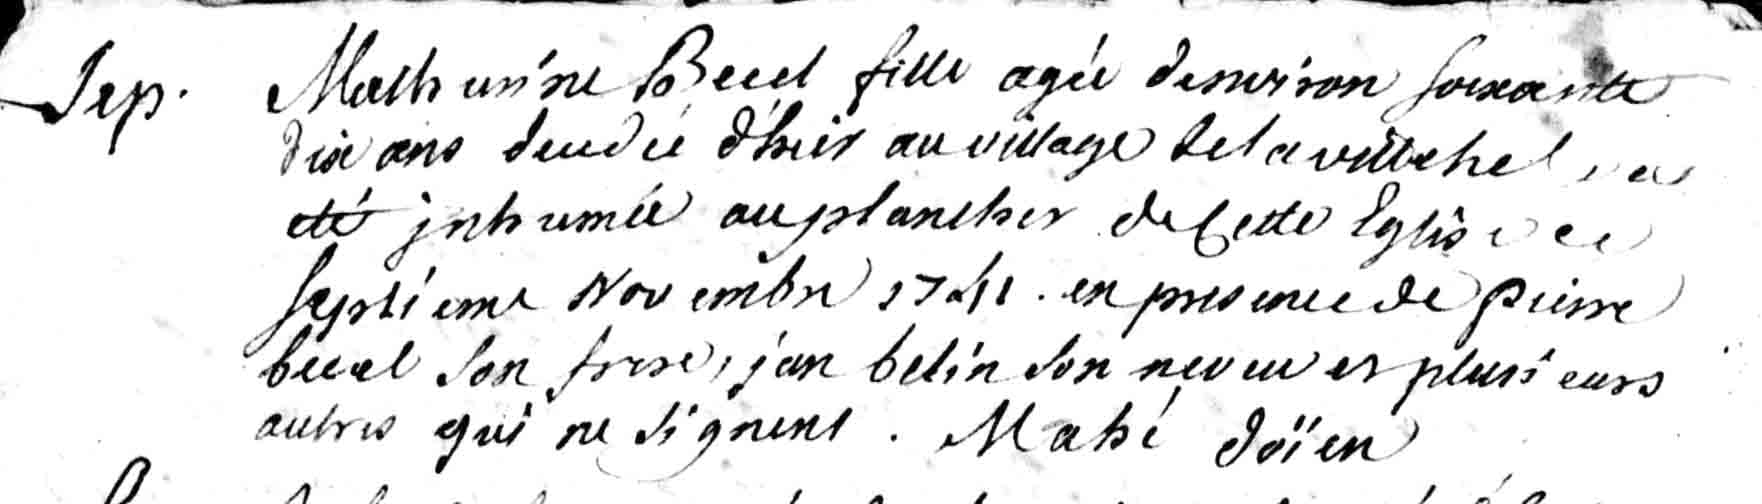 Sep. Mathurine Becel fille agée denviron soixante
dix ans decedée d'hier au village de la villehel a
été jnhumée au plancher de Cette Eglise ce
septieme Novembre 1741. en presence de pierre
becel son frere, jan belin son neveu et plusieurs
autres qui ne signent. Mahé doïen